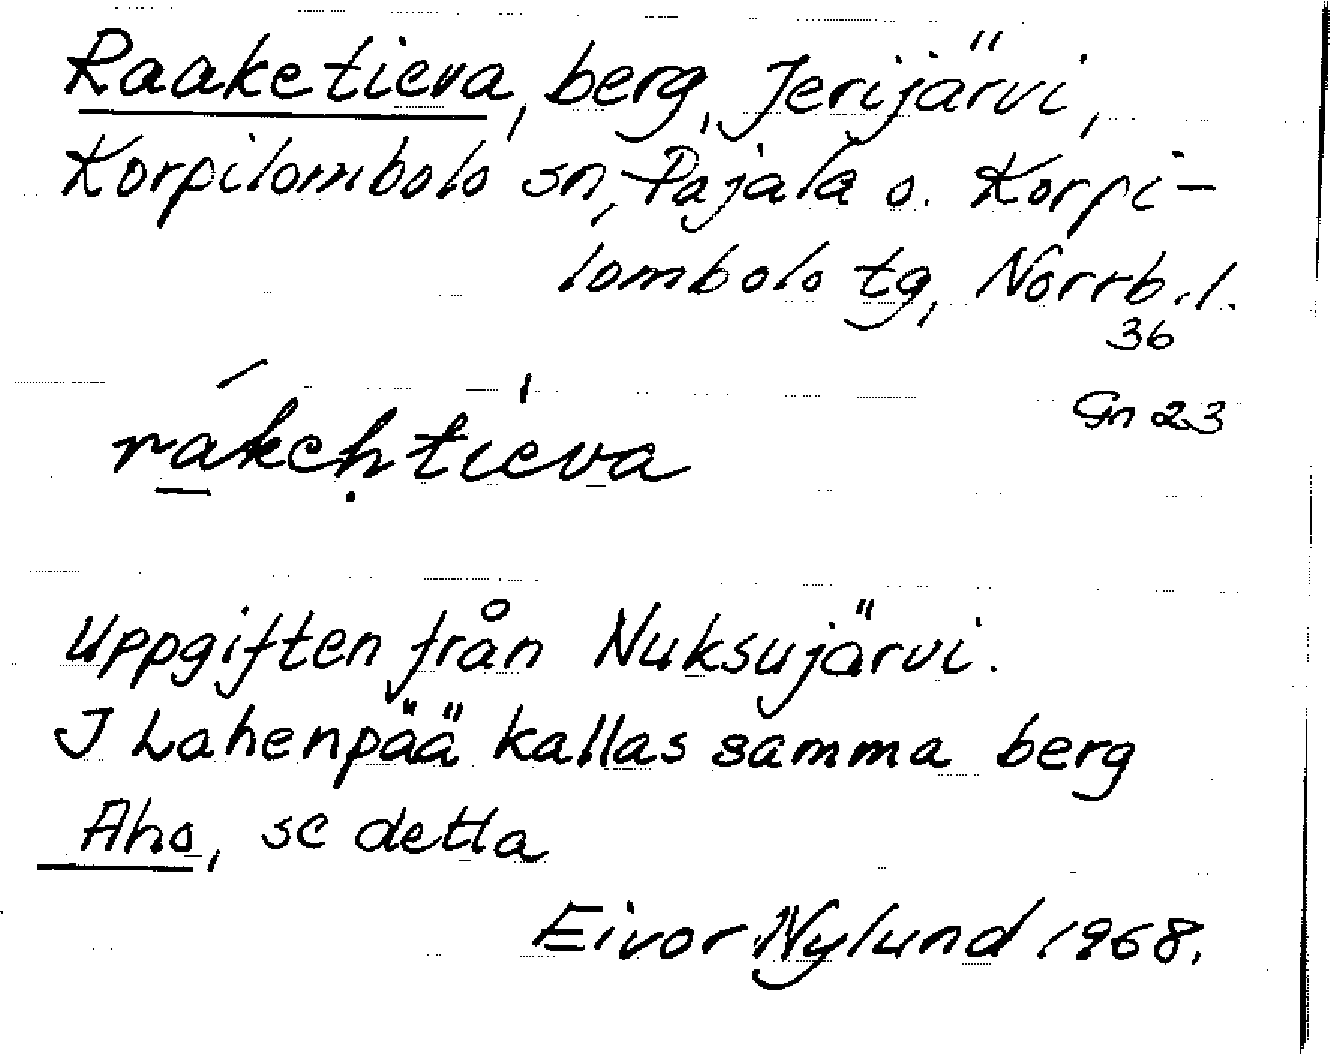 Raaketieva, berg, Jerijärvi,
Korpilombolo sn, Pajala o. Korpi-
lombolo tg, Norrb. l.
36
Gn 23
rákeḥtìeva
Uppgiften från Nuksujärvi.
I Lahenpää kallas samma berg
Aho, se detta
Eivor Nylund 1968.